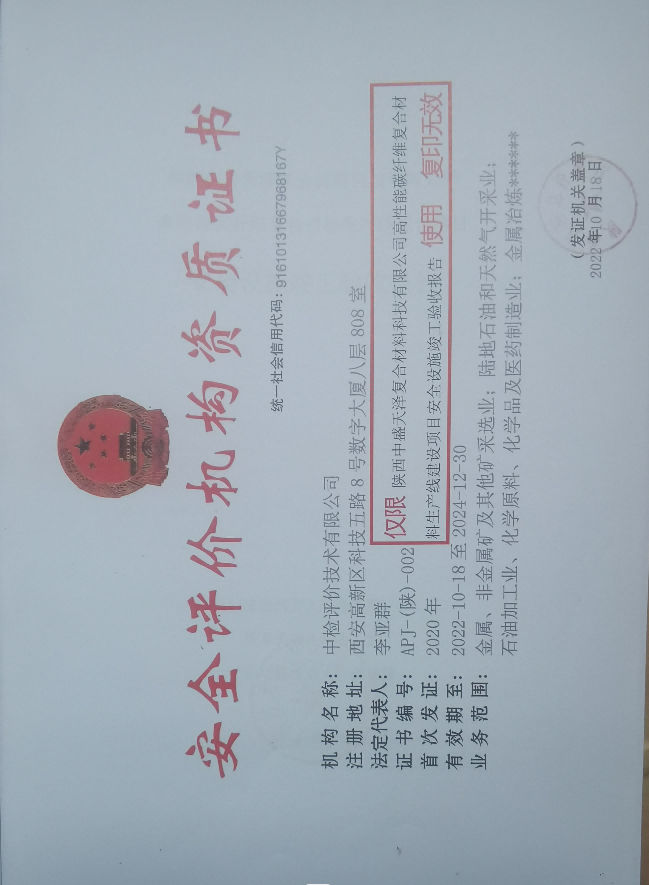 安全评价机构资质证书
统一社会信用代码：91610131667968167Y
机构名称： 中检评价技术有限公司
注册地址： 西安高新区科技五路8号数字大厦八层808室
法定代表人： 李亚群
证书编号： APJ-(陕)-002
首次发证： 2020年
有效期至： 2022-10-18至2024-12-30
业务范围： 金属、非金属矿及其他矿采选业；陆地石油和天然气开采业；
石油加工业、化学原料、化学品及医药制造业；金属冶炼******
仅限 陕西中盛天泽复合材料科技有限公司高性能碳纤维复合材
料生产线建设项目安全设施竣工验收报告 使用 复印无效
（发证机关盖章）
2022年10月18日